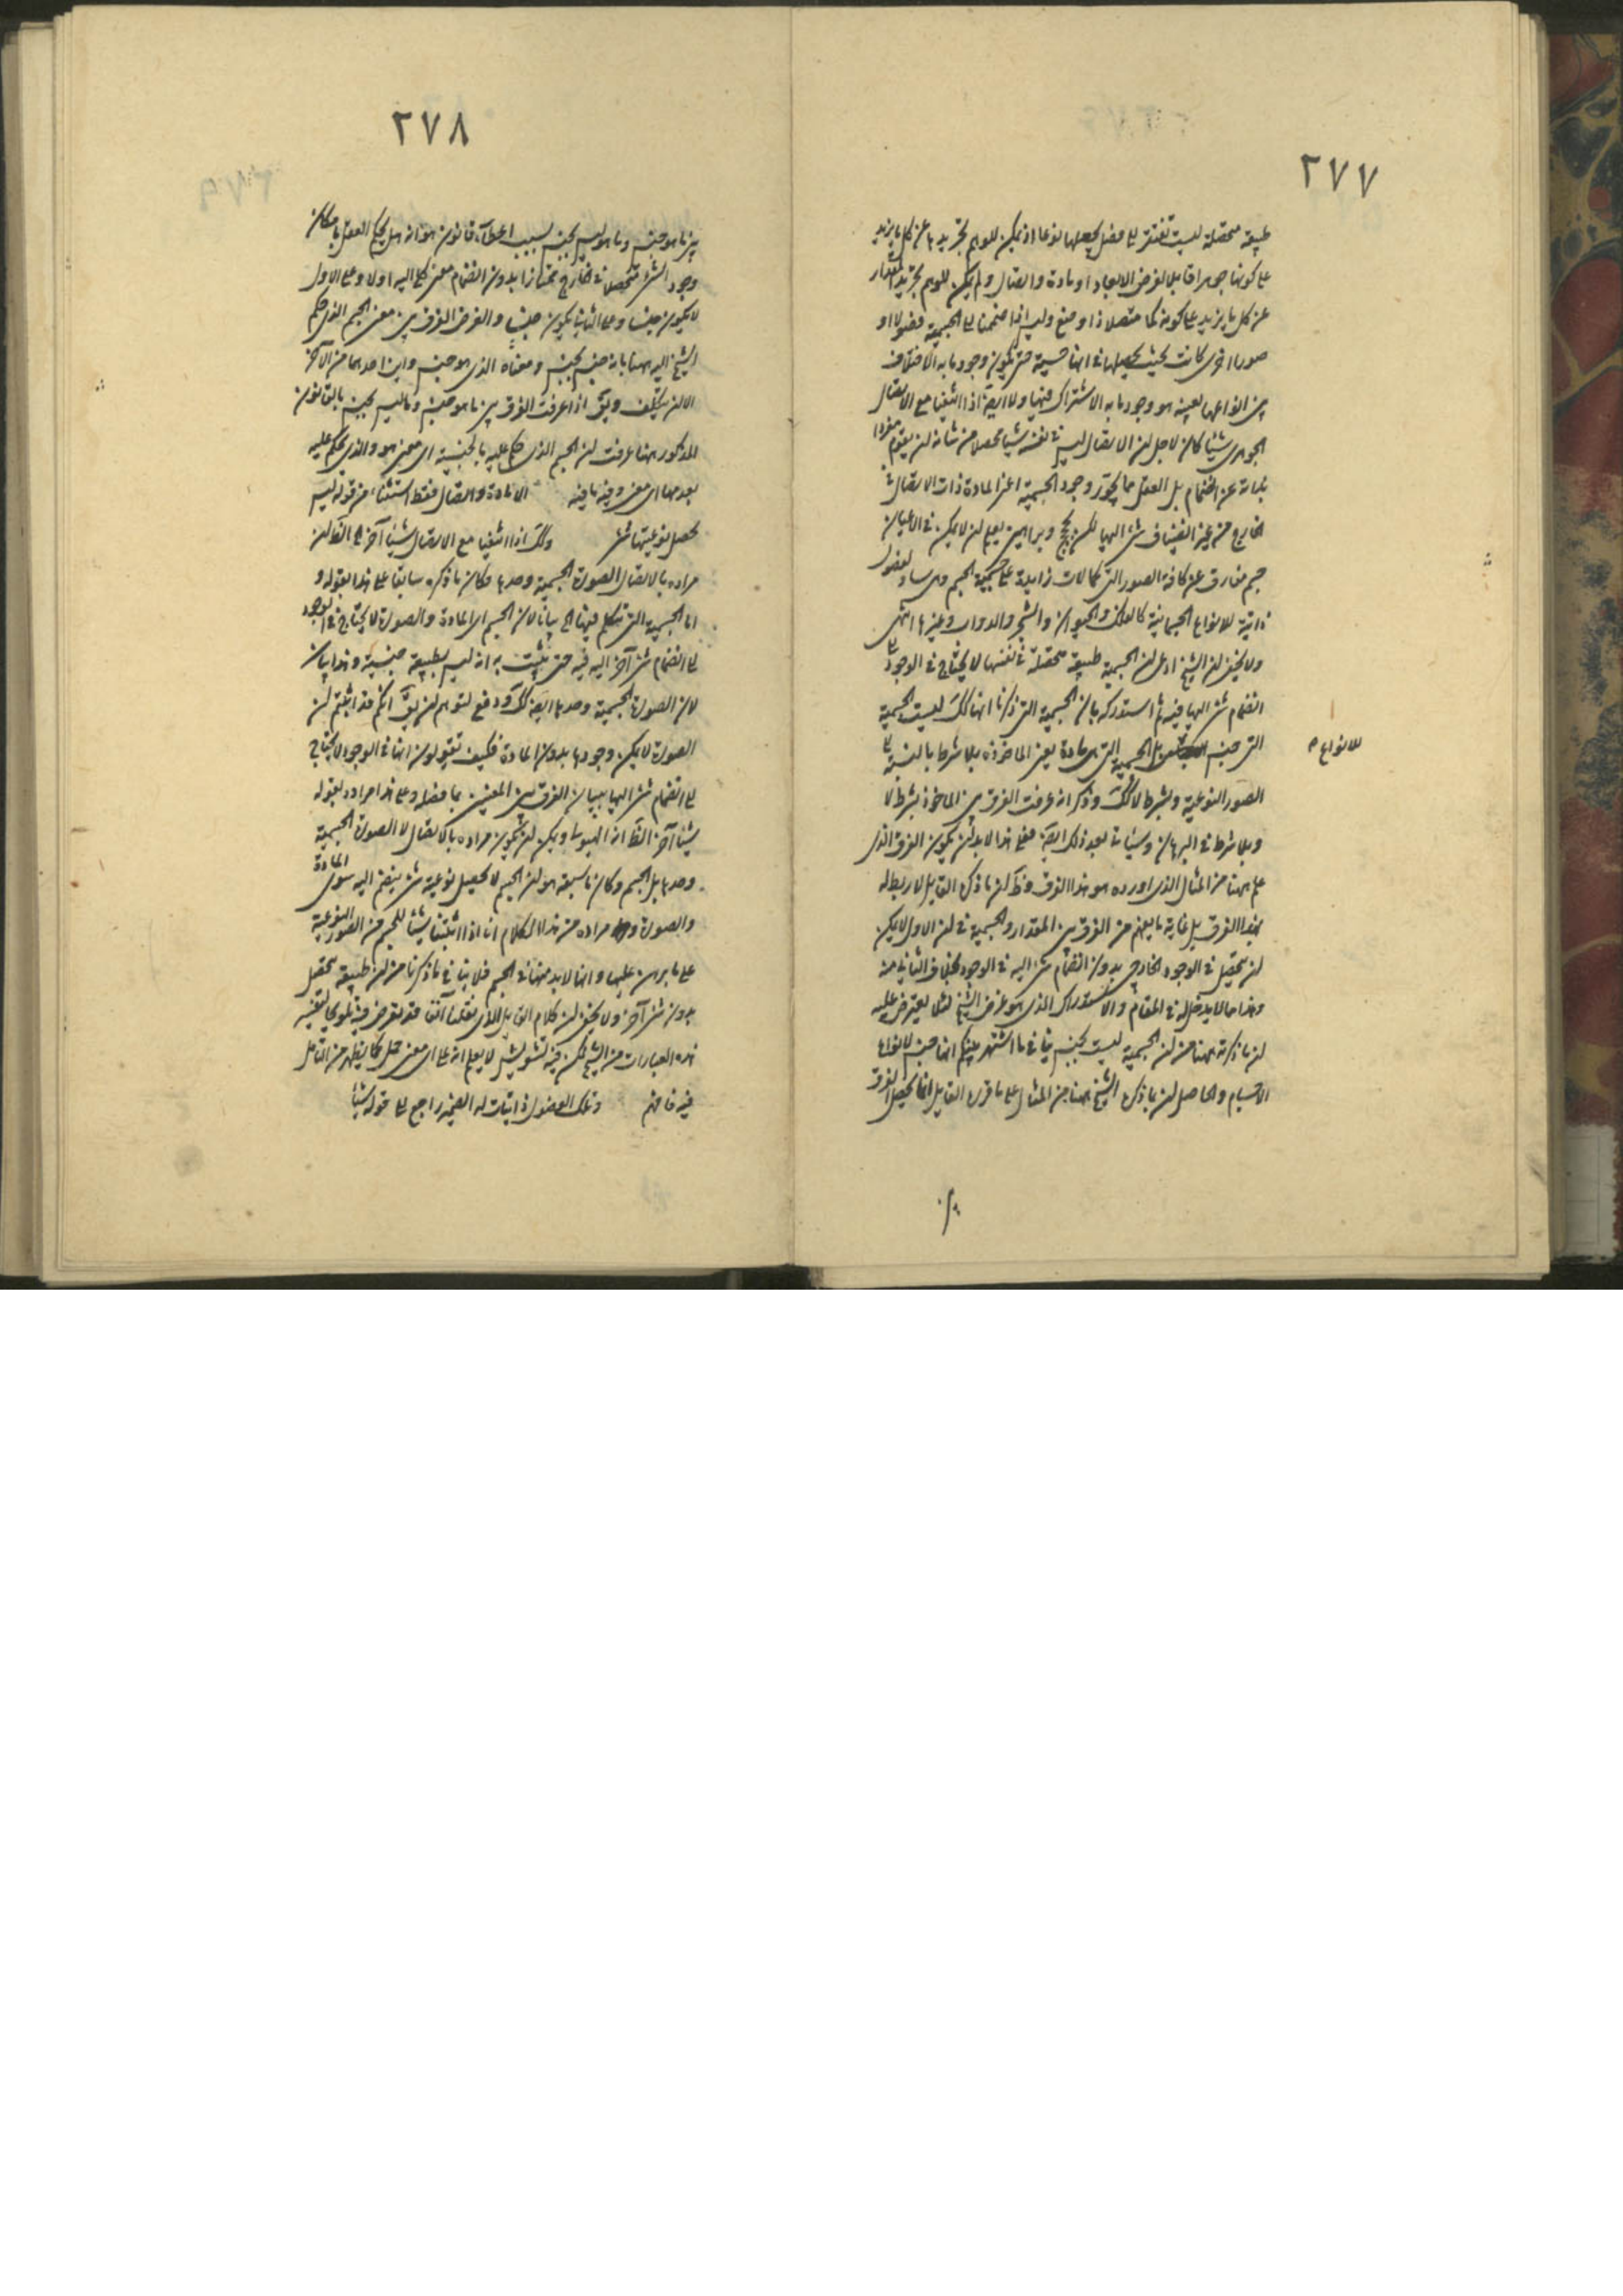 ٢٧٧
طبيعة محصلة ليست تفتقر الى فصل يجعلها نوعا اذ يمكن للوهم تجريدها عن كل ما يزيد
على كونها جوهرا قابلا لفرض الابعاد او مادة واتصال ولم يكن للوهم تجريد المقدار
عن كل ما يزيد على كونه كما متصلا ذا وضع وليس اذا ضممنا الى الجسمية فصولا او
صورا اخرى كانت بحيث يجعلها في انها جسمية حتى يكون وجود ما به الاختلاف
بين انواعها بعينه هو وجود ما به الاشتراك فيها ولا ايضا اذا اثبتنا مع الاتصال
الجوهري شيئا كان لاجل ان الاتصال ليس في نفسه شيئا محصلا من شانه ان يقوم مفردا
بذاته عن انضمام بل العقل مما يجوز وجود الجسمية اعني المادة ذات الاتصال في
الخارج من غير انضياف شئ اليها لكن بحجج وبراهين يعلم ان لا يمكن في الاعيان
جسم مفارق عن كافة الصور التي كمالات زايدة على جسمية الجسم وهي مباد لفصول
ذاتية للانواع الجسمانية كالفلك والحيوان والشجر والدواب وغيرها انتهى
ولا يخفى ان الشيخ ادعى ان الجسمية طبيعة محصلة في نفسها لا يحتاج في الوجود الى
انضمام شئ اليها فيه ثم استدركه بان الجسمية التي ذكرنا انها كك ليست الجسمية
التي جنس بل الجسمية التي هي مادة يعني الماخوذة بلا شرط بالنسبة الى
للانواع
الصور النوعية وبشرط لا كك وذكر انه عرفت الفرق بين الماخوذ بشرط لا
وبلا شرط في البرهان وسياتي بعد ذلك ايضا فعلى هذا لا بد ان يكون الفرق الذي
علم ههنا من المثال الذي اورده هو هذا الفرق وظ ان ما ذكره القايل لا ربط له
بهذا الفرق بل غاية ما يفهم من الفرق بين المقدار والجسمية في ان الاول لا يمكن
ان يحصل في الوجود الخارجي بدون انضمام شئ اليه في الوجود بخلاف الثاني منه
وهذا مما لا يدخل له في المقام والاستدراك الذي هو غرض الشيخ لئلا يعترض عليه
ان ما ذكرته ههنا من ان الجسمية ليست بجنس ينافي ما اشتهر بينكم انها جنس لانواع
الاجسام والحاصل ان ما ذكره الشيخ ههنا من المثال على ما قرره القايل انما يحصل الفرق
٢٧٨
بين ما هو جنس وما هو ليس بجنس بسبب اعطاء قانون هو انه هل يحكم العقل بامكان
وجود الشئ متحصلا في الخارج ممتازا بدون انضمام معنى كلي اليه اولا وعلى الاول
لا يكون جنسا وعلى الثاني يكون جنسا والغرض الفرق بين معنى الجسم الذي حكم
الشيخ اليه ههنا بانه ليس بجنس ومعناه الذي هو جنس واين احدهما من الآخر
الا ان يتكلف ويق اذا عرفت الفرق بين ما هو جنس وما ليس بجنس بالقانون
المذكور ههنا عرفت ان الجسم الذي حكم عليه بالجنسية اي معنى هو والذي يحكم عليه
بعدمها اي معنى وفيه ما فيه الا المادة والاتصال فقط استثناء من قوله ليس
تحصل نوعيتها شئ وكك اذا اثبتنا مع الاتصال شيئا آخر الخ الظ ان
مراده بالاتصال الصورة الجسمية وحدها وكان ما ذكره سابقا على هذا بقوله و
اما الجسمية التي نتكلم فيها الخ بيانا لان الجسم اي المادة والصورة لا يحتاج في الوجود
الى انضمام شئ آخر اليه فيه حتى يثبت به انه ليس بطبيعة جنسية وهذا بيان
لان الصورة الجسمية وحدها ايضا كك ودفع لتوهم ان يق انكم قد اثبتم ان
الصورة لا يمكن وجودها بدون المادة فكيف تقولون انها في الوجود لا يحتاج
الى انضمام شئ اليها ببيان الفرق بين المعنيين بما فصله وعلى هذا مراده بقوله
شيئا آخر الظ انه الهيولى ويمكن ان يكون مراده بالاتصال لا الصورة الجسمية
وحدها بل الجسم وكان ما سبقه هو ان الجسم لا تحصل نوعيته شئ ينضم اليه سوى المادة
والصورة ومراده من هذا الكلام انا اذا اثبتنا شيئا للجسم من الصور النوعية
على ما برهن عليها وانها لا بد منها في الجسم فلا ينافي ما ذكرنا من ان طبيعة تحصل
بدون شئ آخر ولا يخفى ان كلام القايل الذي نقلنا آنفا قد تعرض فيه لتفسير
هذه العبارات من الشيخ لكن فيه تشويش لا يعلم انه على اي معنى حمل كما يظهر من التامل
فيه فافهم وتلك الفصول ذاتيات له الضمير راجع الى قوله شيئا